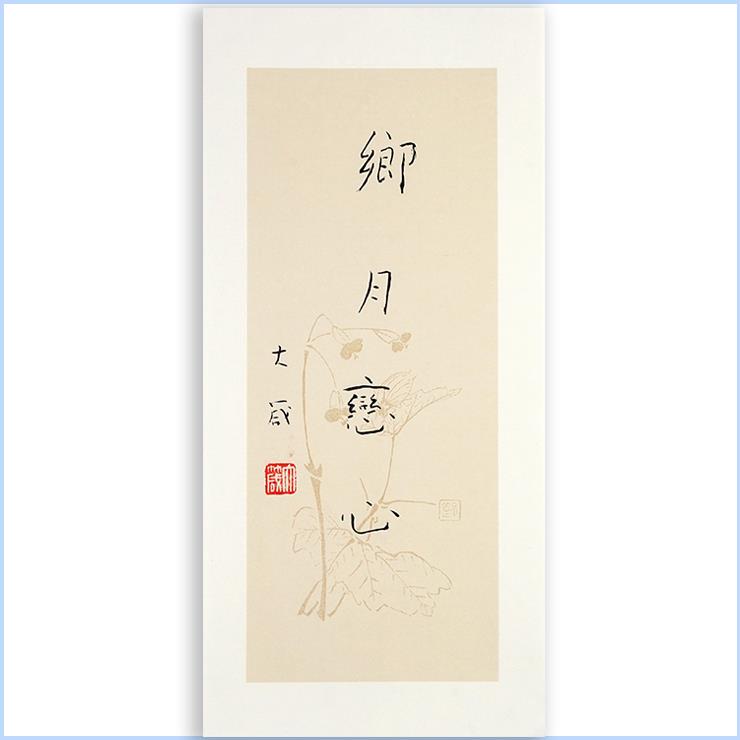 鄉月戀心
大箴